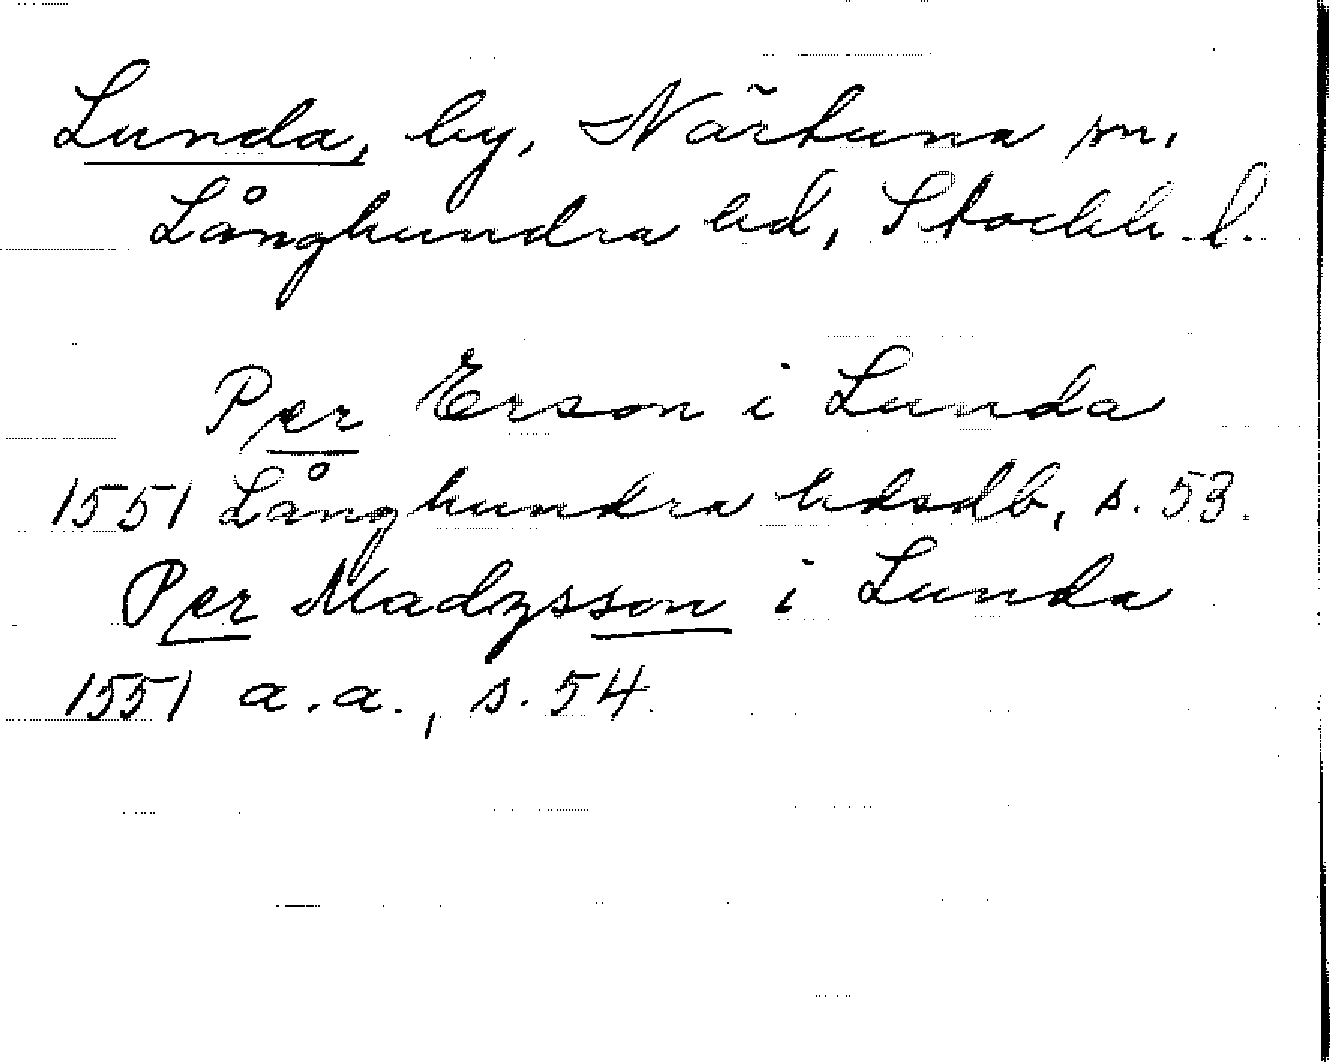 Lunda, by, Närtuna sn.
Långhundra hd, Stockh. l.
Per Erson i Lunda
1551 Långhundra hdsdb, s. 53.
Per Madzsson i Lunda
1551 a.a., s. 54.